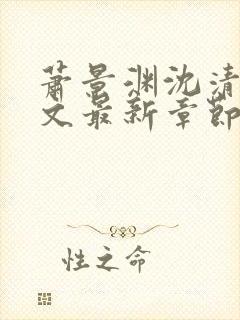 萧景渊沈清
文最新章节
性之命